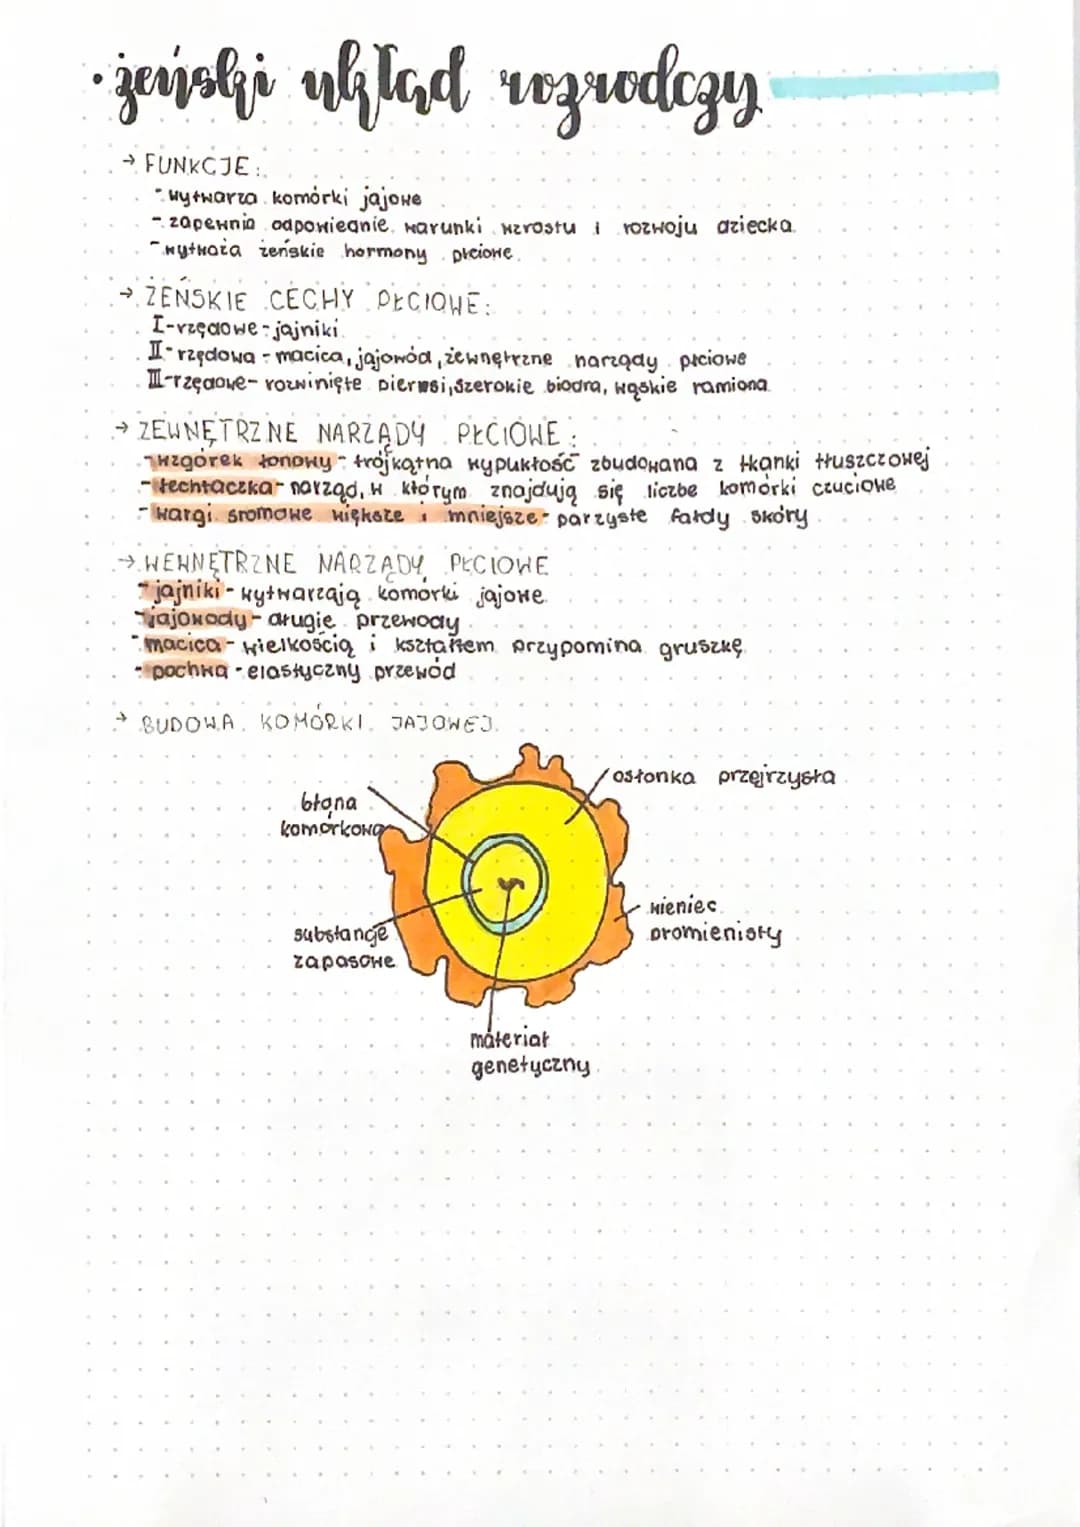 · żeński układ rozrodczy
→ FUNKCJE:
- wytwarza komórki jajowe
- zapewnia odpowiednie warunki wzrostu i rozwoju dziecka.
- wytważa żeńskie hormony płciowe.
→ ŻEŃSKIE CECHY PŁCIOWE:
I-rzędowe - jajniki
II- rzędowa - macica, jajowód, zewnętrzne narządy płciowe
III-rzędowe- rozwinięte piersi, szerokie biodra, wąskie ramiona
→ ZEWNĘTRZNE NARZĄDY PŁCIOWE:
- wzgórek łonowy - trójkątna wypukłość zbudowana z tkanki tłuszczowej
- łechtaczka - narząd, w którym znajdują się liczbe komórki czuciowe
- wargi sromowe większe i mniejsze - parzyste fałdy skóry
→ WEWNĘTRZNE NARZĄDY PŁCIOWE
- jajniki - wytwarzają komórki jajowe
- jajowody - długie przewody
- macica - wielkością i kształtem przypomina gruszkę
- pochwa - elastyczny przewód
→ BUDOWA KOMÓRKI JAJOWEJ
osłonka przejrzysta
błona
komórkowa
wieniec
promienisty
substancje
zapasowe
materiał
genetyczny